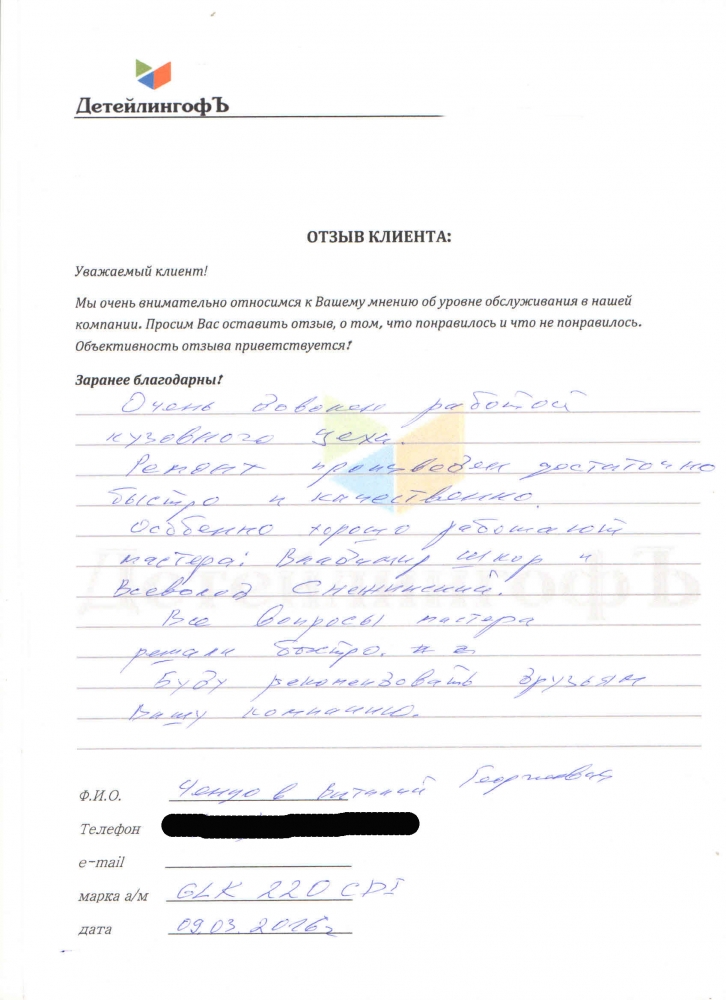 ДетейлингофЪ
ОТЗЫВ КЛИЕНТА:
Уважаемый клиент!
Мы очень внимательно относимся к Вашему мнению об уровне обслуживания в нашей
компании. Просим Вас оставить отзыв, о том, что понравилось и что не понравилось.
Объективность отзыва приветствуется!
Заранее благодарны!
Очень доволен работой
кузовного цеха.
Ремонт произведен достаточно
быстро и качественно.
Особенно хорошо работают
мастера: Владимир Шкор и
Всеволод Снежинский.
Все вопросы мастера
решали быстро.
Буду рекомендовать друзьям
Вашу компанию.
Ф.И.О. Виталий Георгиевич
Телефон
e-mail
марка а/м GLK 220 CDI
дата 09.03.2016г